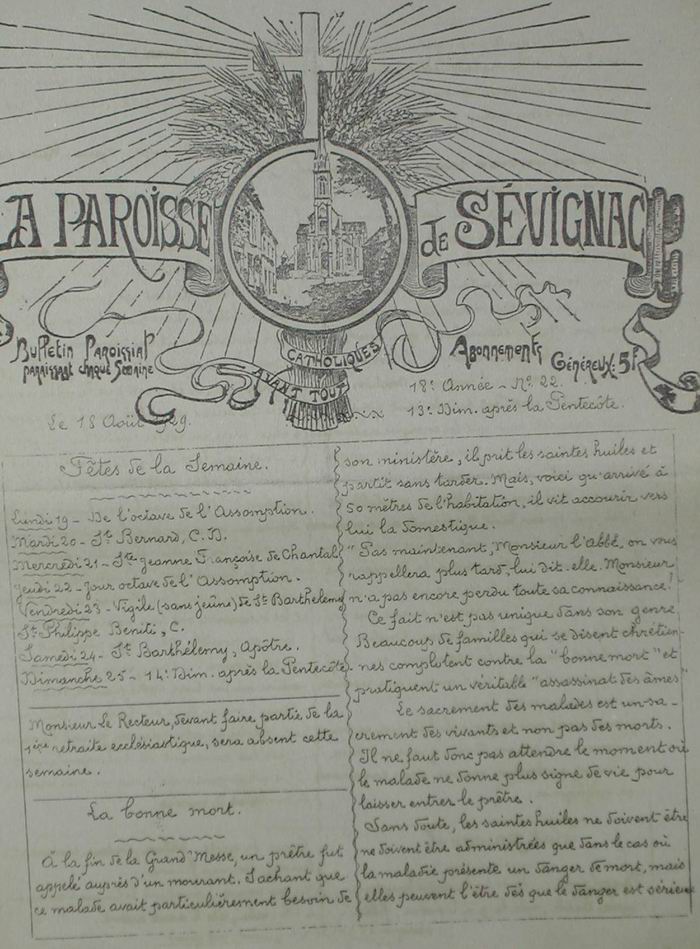 LA PAROISSE
de SÉVIGNAC
CATHOLIQUES
AVANT TOUT
Bulletin Paroissial
paraissant chaque Semaine
Abonnements
Généreux: 5F
18e Année - No. 22.
13e Dim. après la Pentecôte.
Le 18 Août 29.
Fêtes de la Semaine.
Lundi 19 - De l'octave de l'Assomption.
Mardi 20 - St. Bernard, C. D.
Mercredi 21 - Ste Jeanne Françoise de Chantal
Jeudi 22 - Jour octave de l'Assomption.
Vendredi 23 - Vigile (sans jeûne) de St. Barthélemy
St. Philippe Beniti, C.
Samedi 24 - St. Barthélemy, Apôtre.
Dimanche 25 - 14e Dim. après la Pentecôte.
Monsieur Le Recteur, devant faire partie de la
1ère retraite ecclésiastique, sera absent cette
semaine.
La bonne mort.
À la fin de la Grand'Messe, un prêtre fut
appelé auprès d'un mourant. Sachant que
ce malade avait particulièrement besoin de
son ministère, il prit les saintes huiles et
partit sans tarder. Mais, voici qu'arrivé à
50 mètres de l'habitation, il vit accourir vers
lui la domestique.
"Pas maintenant, Monsieur l'Abbé, on vous
rappellera plus tard, lui dit-elle. Monsieur
n'a pas encore perdu toute sa connaissance!
Ce fait n'est pas unique dans son genre.
Beaucoup de familles qui se disent chrétien-
nes complotent contre la "bonne mort" et
pratiquent un véritable "assassinat des âmes"
Le sacrement des malades est un sa-
crement des vivants et non pas des morts.
Il ne faut donc pas attendre le moment où
le malade ne donne plus signe de vie pour
laisser entrer le prêtre.
Sans doute, les saintes huiles ne doivent être
ne doivent être administrées que dans le cas où
la maladie présente un danger de mort, mais
elles peuvent l'être dès que le danger est sérieux